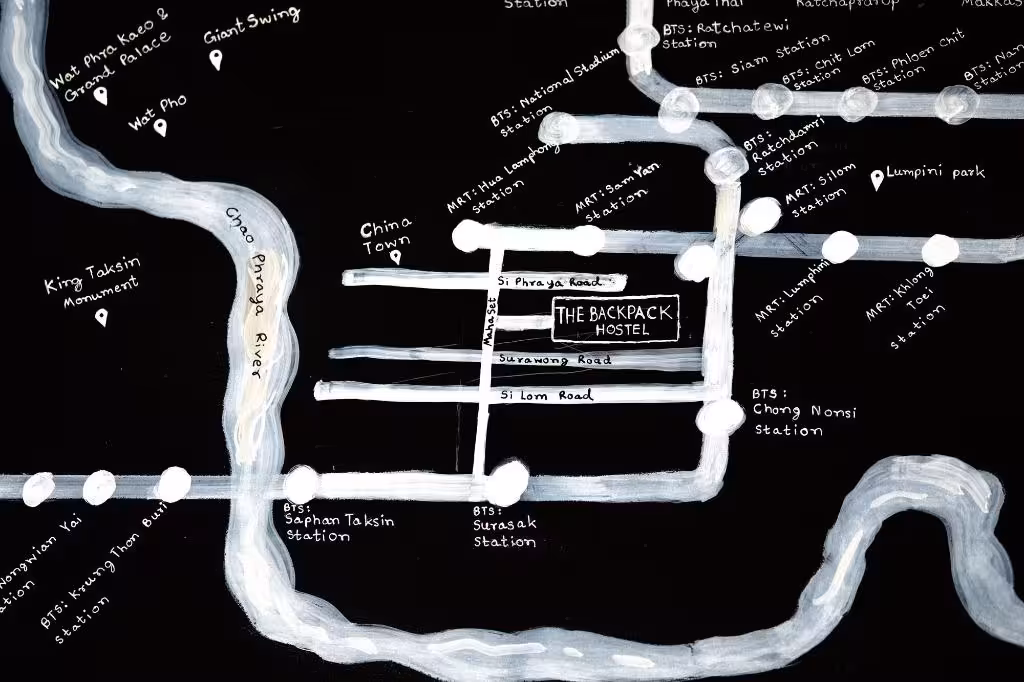 Station
Phaya Thai
Ratchaprarop
Makkas
BTS: Ratchatewi
Station
BTS: Siam Station
BTS: Chit Lom
Station
BTS: Phloen Chit
Station
BTS: Nan
Station
Wat Phra Kaeo &
Grand Palace
Giant Swing
Wat Pho
BTS: National Stadium
Station
BTS:
Ratchdamri
Station
MRT: Hua Lamphong
Station
MRT: Sam Yan
Station
MRT: Silom
Station
Lumpini park
Chao Phraya River
China
Town
King Taksin
Monument
Si Phraya Road
MahaSet
THE BACKPACK
HOSTEL
MRT: Lumphini
Station
MRT: Khlong
Toei
Station
Surawong Road
Si Lom Road
BTS:
Chong Nonsi
Station
BTS:
Saphan Taksin
Station
BTS:
Surasak
Station
Wongwian Yai
ation
BTS: Krung Thon Buri
Station